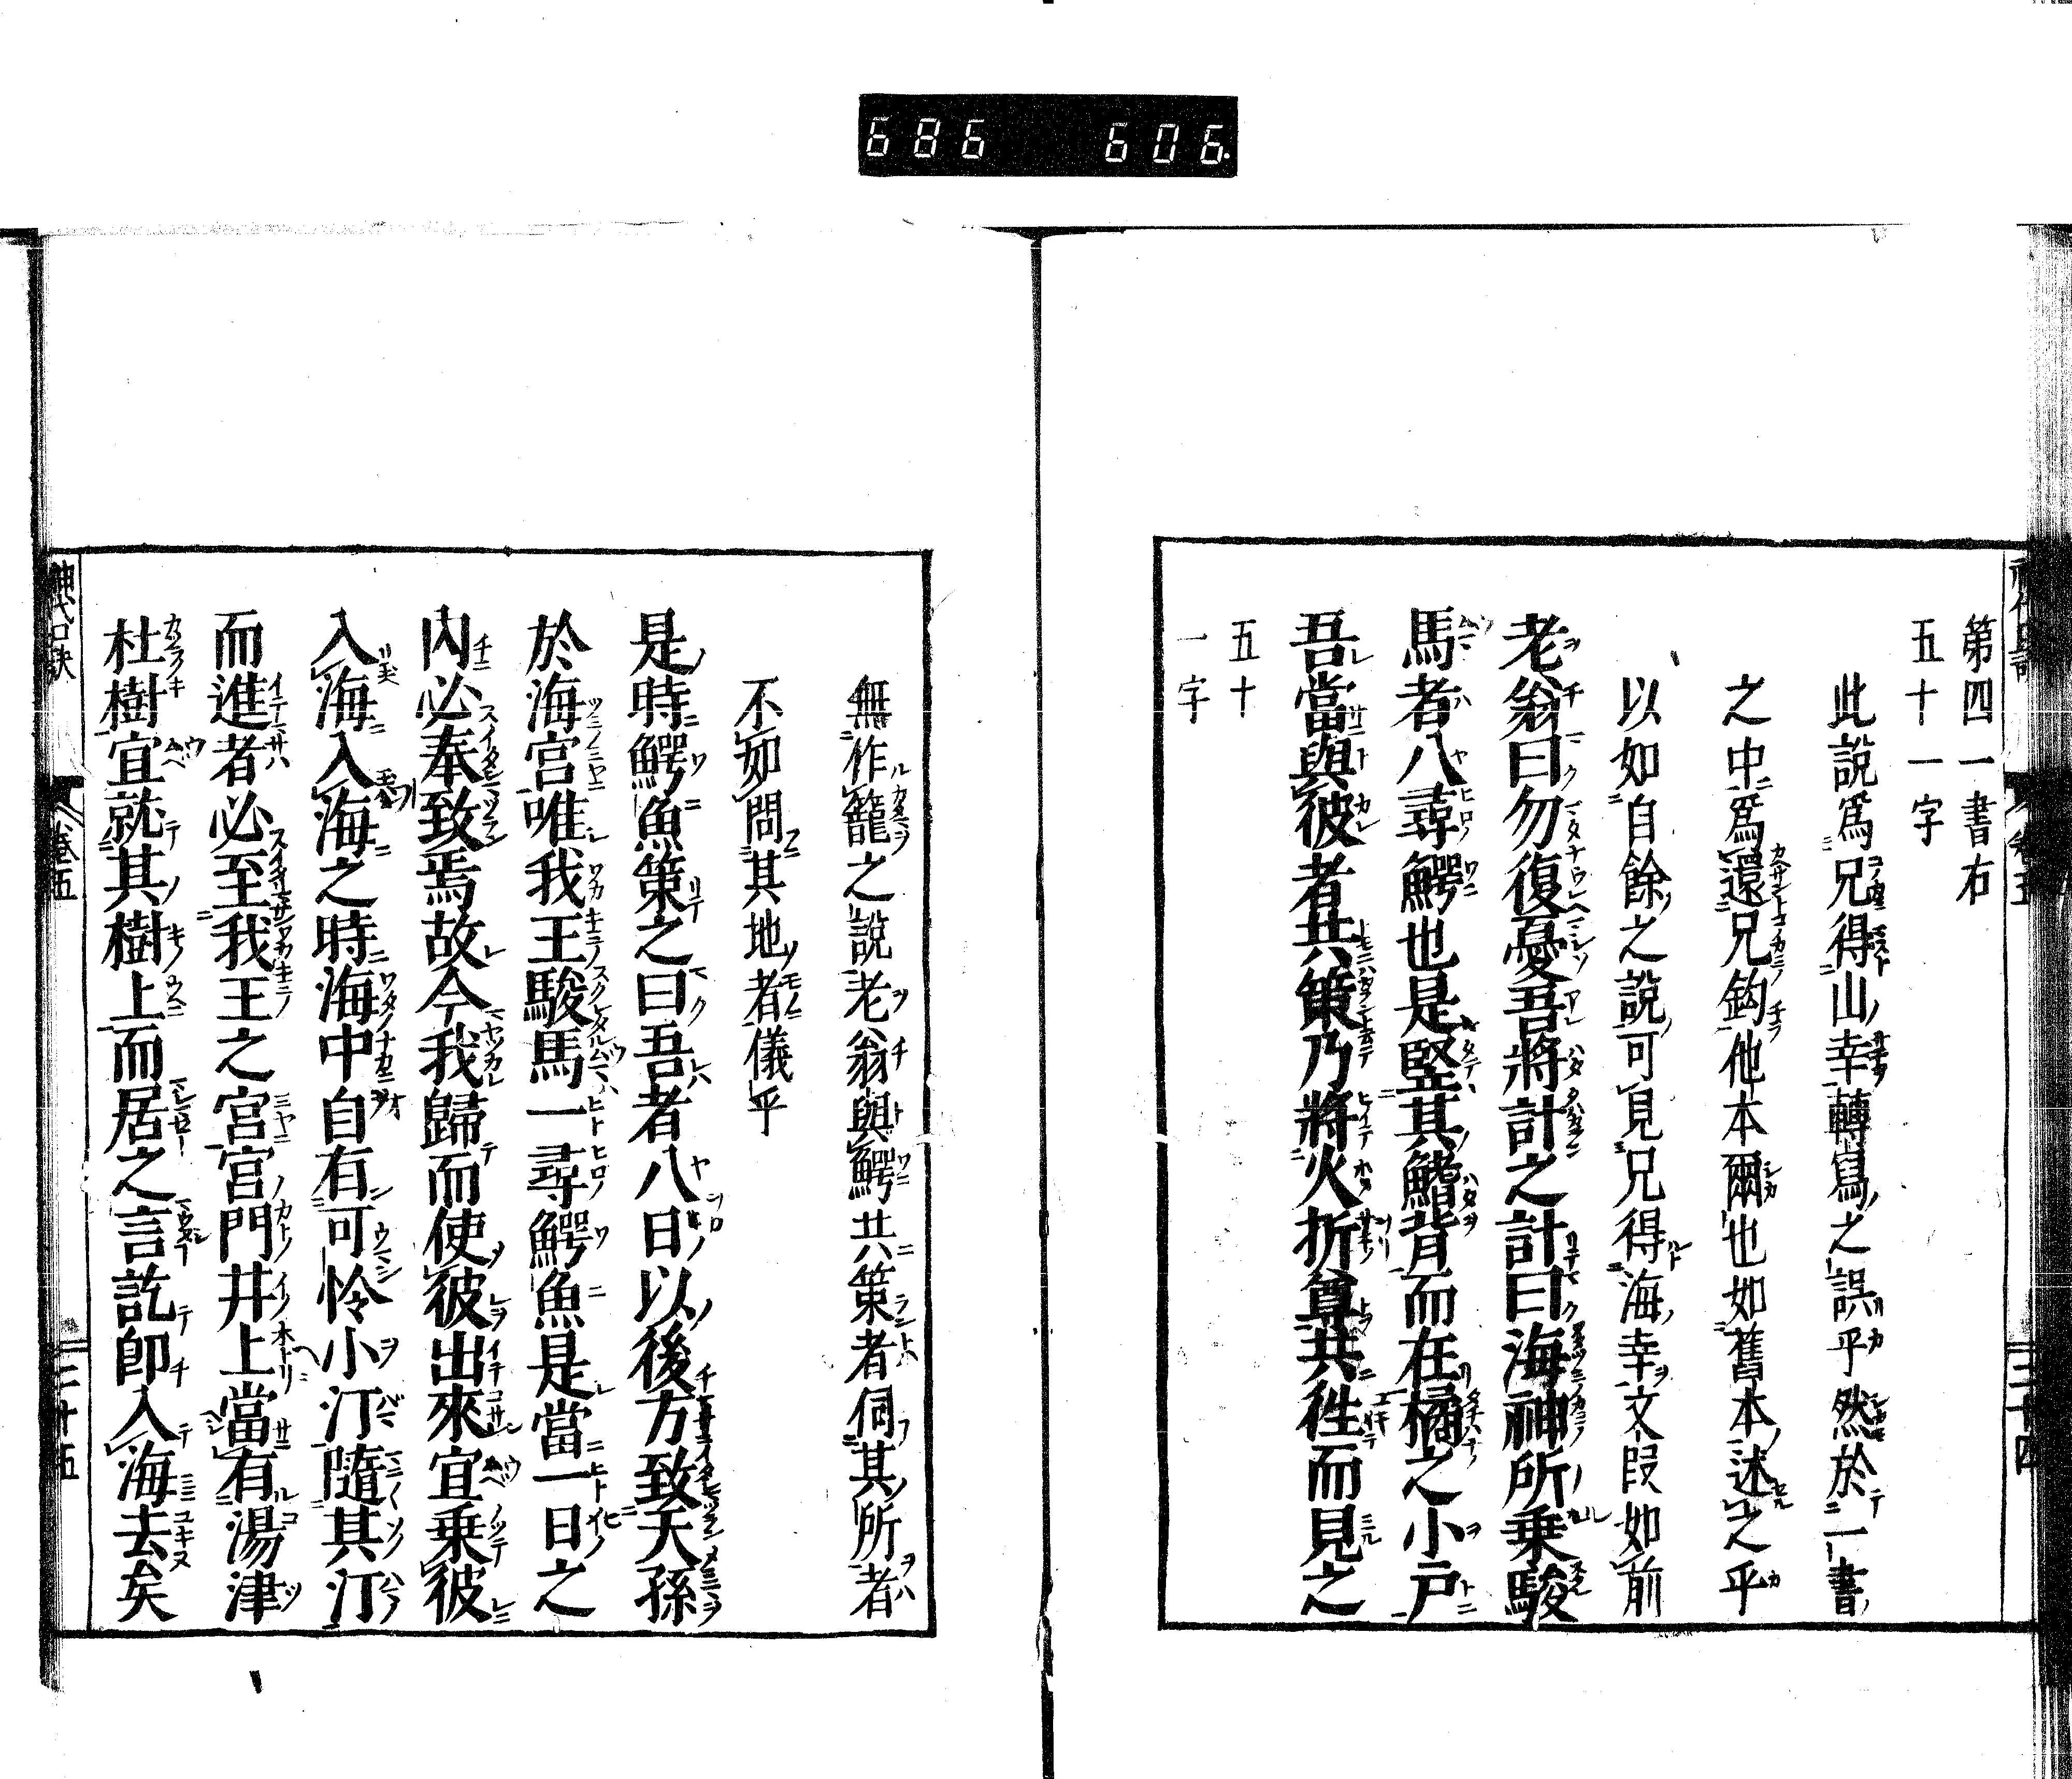 686 606
第四一書右
五十一字
此說爲兄得山幸轉寫之誤乎然於一書
之中爲還兄鈎他本爾也如舊本述之乎
以如自餘之說可見兄得海幸文段如前
老翁曰勿復憂吾將計之計曰海神所乘駿
馬者八尋鰐也是竪其鰭背而在橘之小戸
吾當與彼者共策乃將火折尊共徃而見之
五十
一字
無作籠之說老翁與鰐共策者伺其所者
不如問其地者儀乎
是時鰐魚策之曰吾者八日以後方致天孫
於海宮唯我王駿馬一尋鰐魚是當一日之
內必奉致焉故今我歸而使彼出來宜乘彼
入海入海之時海中自有可怜小汀隨其汀
而進者必至我王之宮宮門井上當有湯津
杜樹宜就其樹上而居之言訖卽入海去矣
神代口訣 卷五 二十五